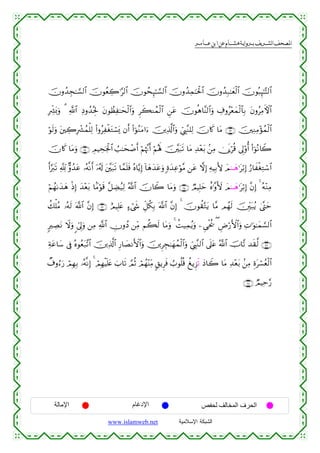 المصحف الشريف برواية هشام عن ابن عامر
ٱلتَّٰٓئِبُونَ ٱلْعَٰبِدُونَ ٱلْحَٰمِدُونَ ٱلسَّٰٓئِحُونَ ٱلرَّٰكِعُونَ ٱلسَّٰجِدُونَ
ٱلْءَامِرُونَ بِٱلْمَعْرُوفِ وَٱلنَّاهُونَ عَنِ ٱلْمُنكَرِ وَٱلْحَٰفِظُونَ لِحُدُودِ ٱللَّهِ ۗ وَبَشِّرِ
ٱلْمُؤْمِنِينَ مَا كَانَ لِلنَّبِىِّ وَٱلَّذِينَ ءَامَنُوٓا۟ أَن يَسْتَغْفِرُوا۟ لِلْمُشْرِكِينَ وَلَوْ
كَانُوٓا۟ أُو۟لِى قُرْبَىٰ مِنۢ بَعْدِ مَا تَبَيَّنَ لَهُمْ أَنَّهُمْ أَصْحَٰبُ ٱلْجَحِيمِ وَمَا كَانَ
ٱسْتِغْفَارُ إِبْرَٰهَٰمَ لِأَبِيهِ إِلَّا عَن مَّوْعِدَةٍ وَعَدَهَآ إِيَّاهُ فَلَمَّا تَبَيَّنَ لَهُۥٓ أَنَّهُۥ عَدُوٌّ لِّلَّهِ تَبَرَّأَ
مِنْهُ ۚ إِنَّ إِبْرَٰهَٰمَ لَأَوَّٰهٌ حَلِيمٌ وَمَا كَانَ ٱللَّهُ لِيُضِلَّ قَوْمًۢا بَعْدَ إِذْ هَدَىٰهُمْ
حَتَّىٰ يُبَيِّنَ لَهُم مَّا يَتَّقُونَ ۚ إِنَّ ٱللَّهَ بِكُلِّ شَىْءٍ عَلِيمٌ إِنَّ ٱللَّهَ لَهُۥ مُلْكُ
ٱلسَّمَٰوَٰتِ وَٱلْأَرْضِ ۖ يُحْىِۦ وَيُمِيتُ ۚ وَمَا لَكُم مِّن دُونِ ٱللَّهِ مِن وَلِىٍّ وَلَا نَصِيرٍ
لَّقَد تَّابَ ٱللَّهُ عَلَى ٱلنَّبِىِّ وَٱلْمُهَٰجِرِينَ وَٱلْأَنصَارِ ٱلَّذِينَ ٱتَّبَعُوهُ فِى سَاعَةِ
ٱلْعُسْرَةِ مِنۢ بَعْدِ مَا كَادَ تَزِيغُ قُلُوبُ فَرِيقٍ مِّنْهُمْ ثُمَّ تَابَ عَلَيْهِمْ ۚ إِنَّهُۥ بِهِمْ رَءُوفٌ
رَّحِيمٌ
الحرف المخالف لحفص الإدغام الإمالة
www.islamweb.net الشبكة الإسلامية